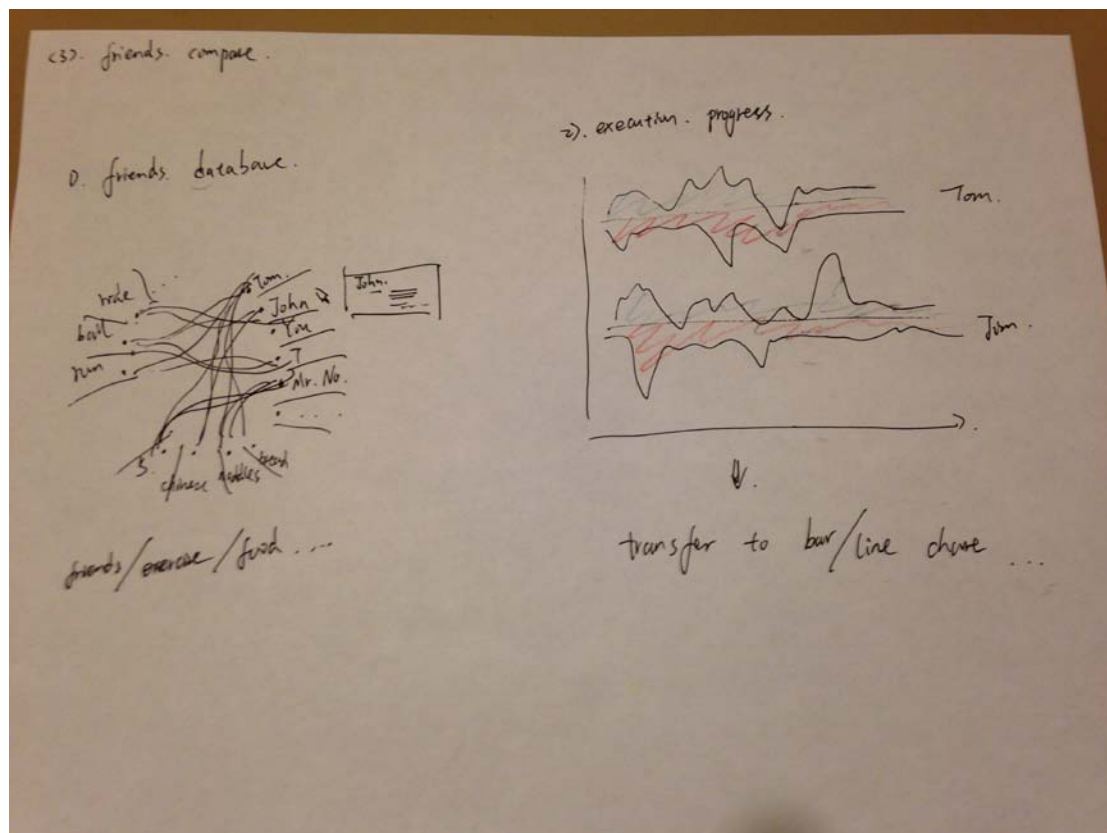 (3). friends. compare.
1). friends. database.
ride ...
ball
run
Tom.
John
You
I
Mr. No.
....
John.
S.
chinese noodles bread
friends/exercise/food ....
2). execution. progress.
Tom.
Jim.
transfer to bar/line chare ...